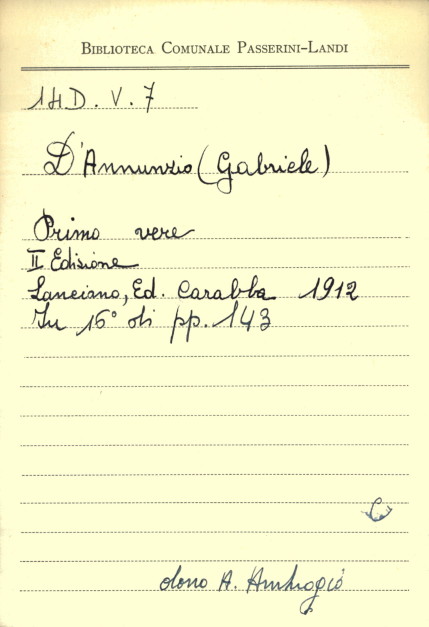 BIBLIOTECA COMUNALE PASSERINI-LANDI
14D. V. 7
D'Annunzio (Gabriele)
Primo vere
II Edizione
Lanciano, Ed. Carabba 1912
In 16° di pp. 143
dono A. Ambrogio